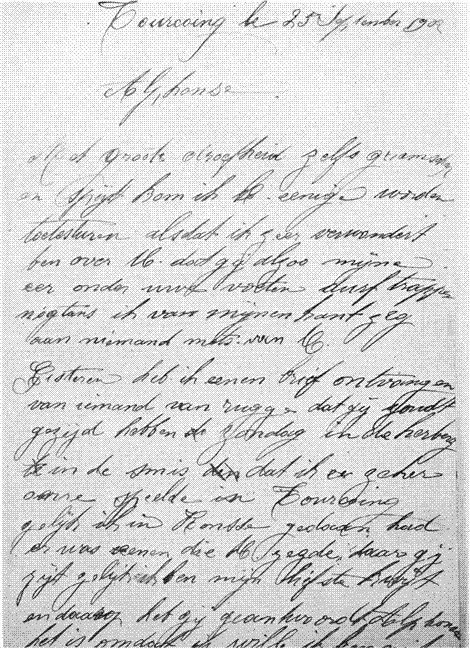 Tourcoing le 25 September 190
Alphonse
Met groote droefheid zelfs gramschap
en spijt kom ik U. eenige worden
toetesturen alsdat ik zeer verwondert
ben over U. dat gij alzoo mijne
eer onder uwe voeten durf trappen
nogtans ik van mijnen kant zeg
aan niemand niets van U.
Gisteren heb ik eenen brief ontvangen
van iemand van rugge dat gij zoudt
gezeid hebben de zondag in die herberg
in de smis dat ik er zeker
eenne speelde in Tourcoing
gelijk ik in Ronsse gedaen had
er was eenen die U zegde, daar gij
zijt gelijk ik ben mijn liefste kwijt
en daarop het gij geantwoord Alphonse
het is omdat ik wille ik ben